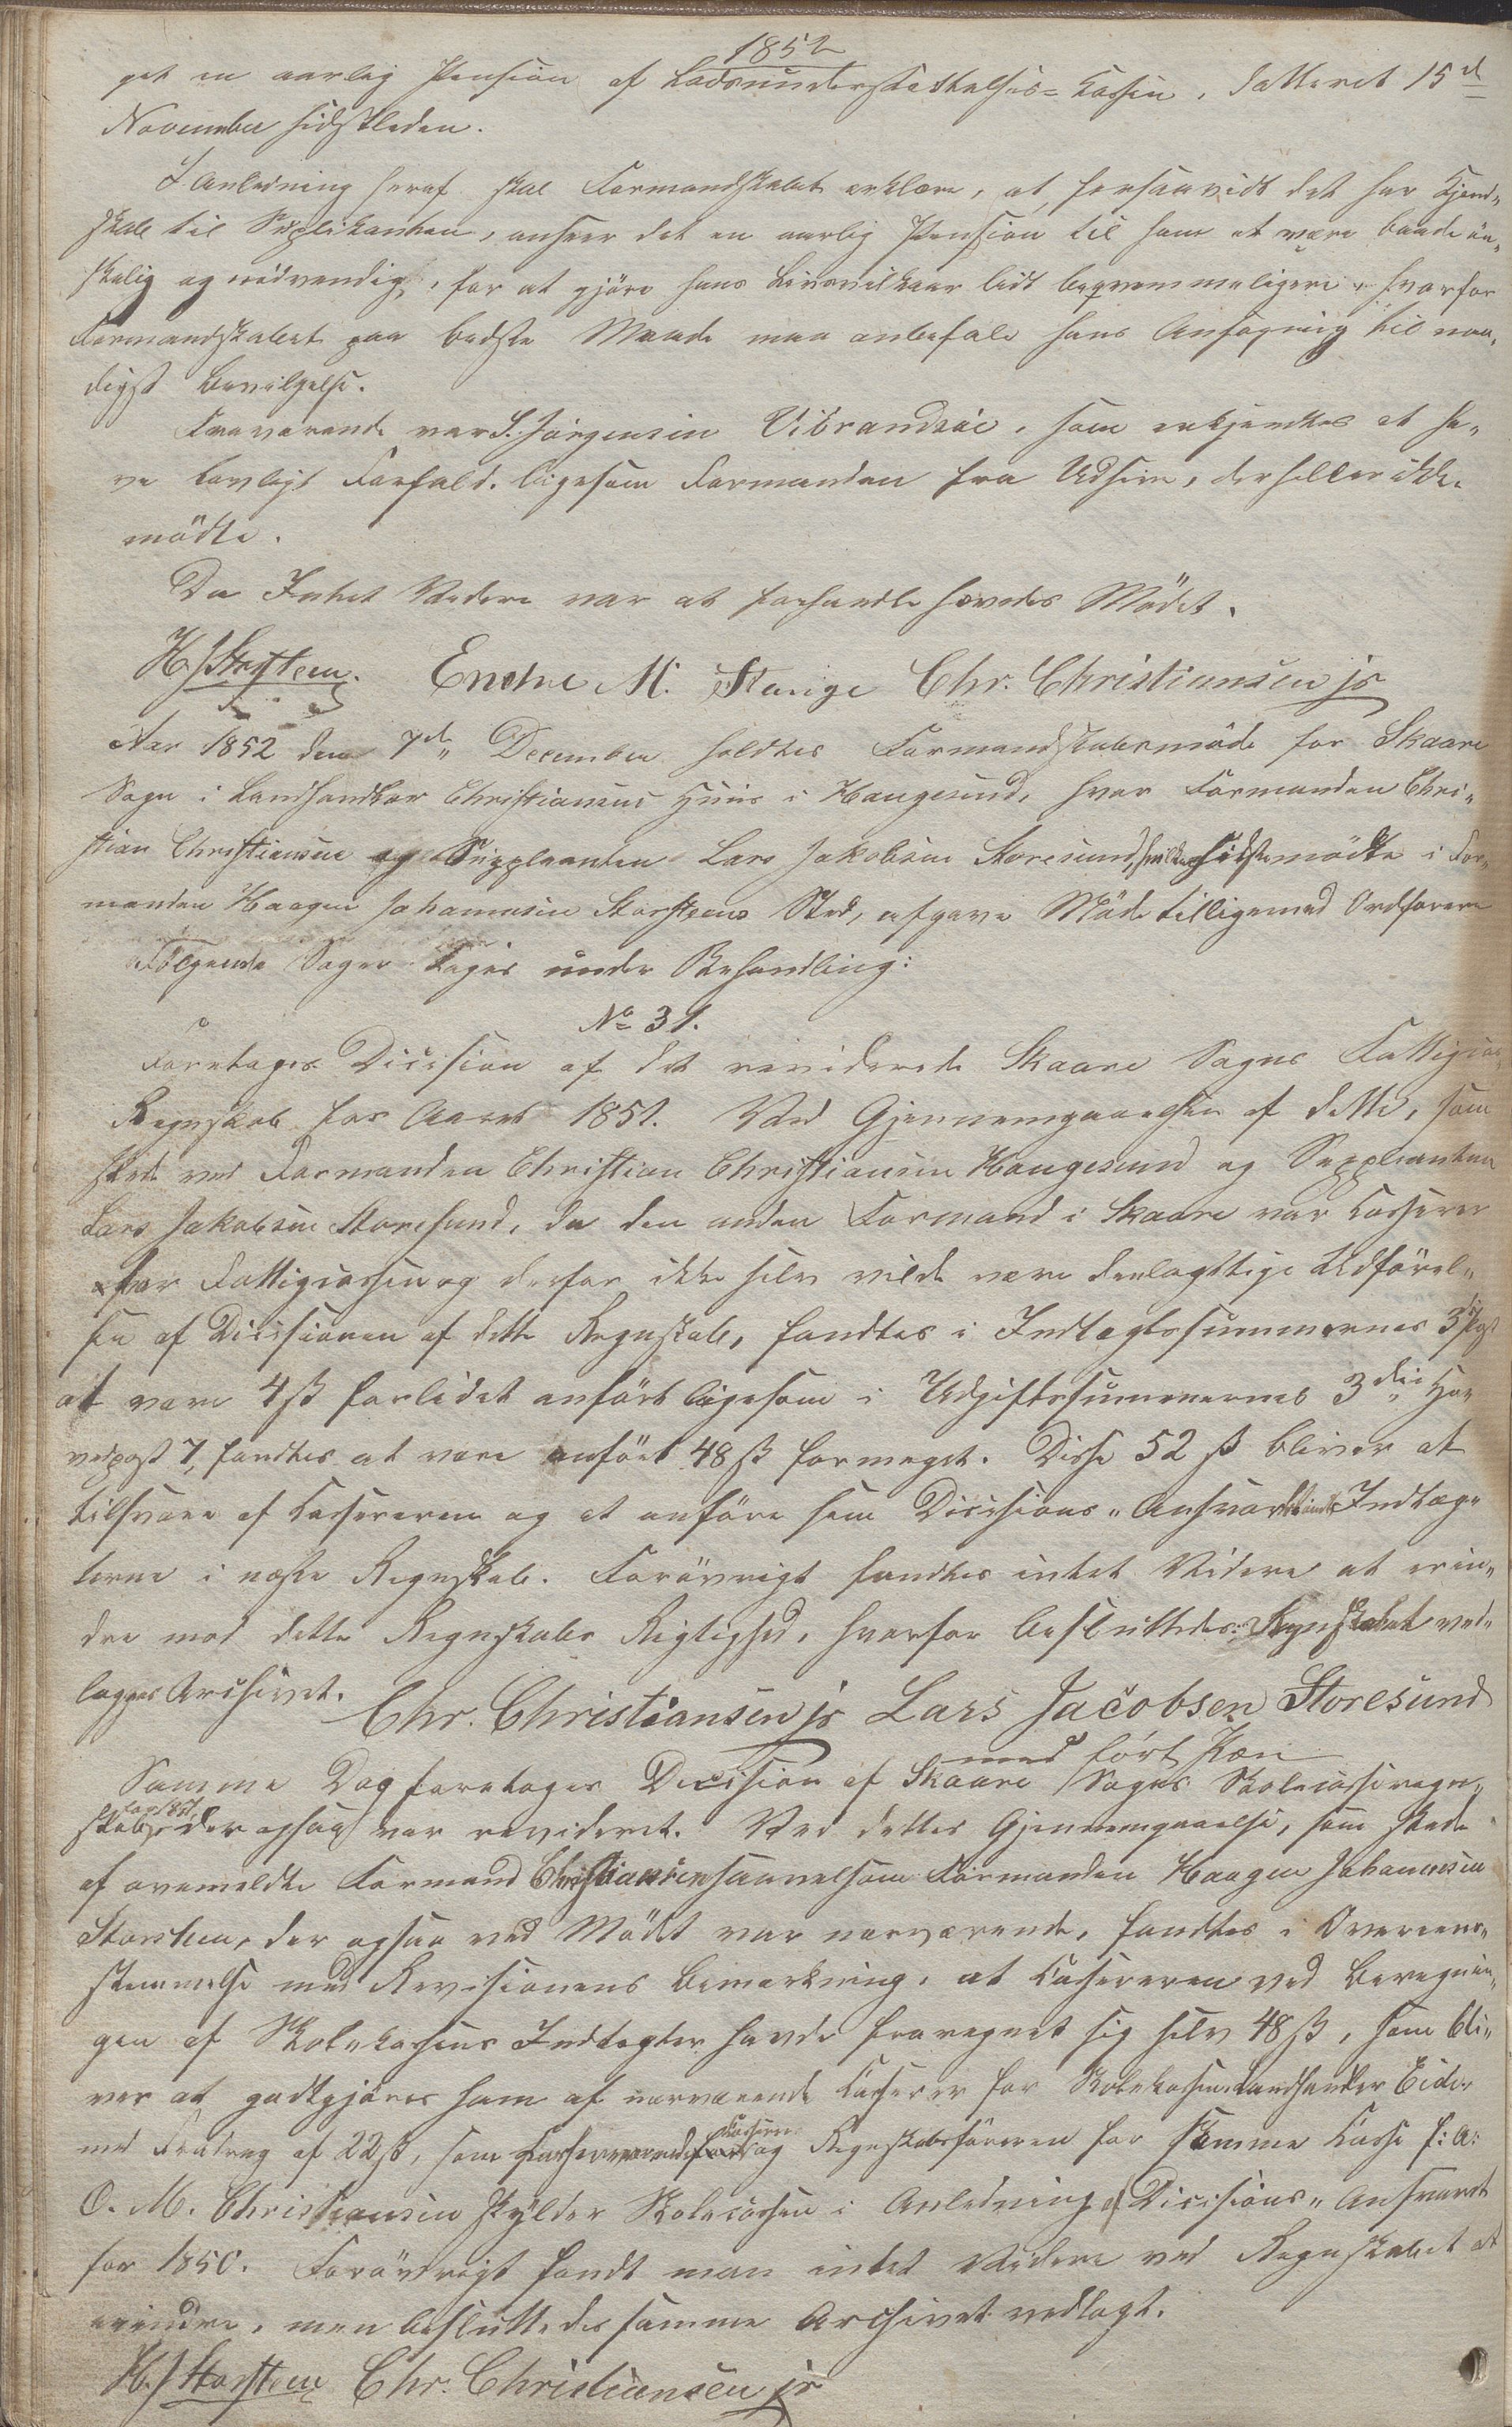 1852
get en aarlig Pension af Lodsunderstøttelses-Kassen, datteret 15de
November sidstleden.
I Anledning heraf skal Formandskabet erklære, at, forsaavidt det har Kjend„
skab til Suplikanten, anseer det en aarlig Pension til ham at være baade ön„
skelig og nödvendig, for at gjöre hans Livsvilkaar lidt beqvemmeligere, hvorfor
Formandskabet paa bedste Maade maa anbefale hans Ansögning til naa„
digst Bevilgelse.
Fraværende var S. Jörgensen Vibrandsöe, som erkjendtes at ha„
ve lovligt Forfald, ligesom Formanden fra Udsire, der heller ikke
mödte.
Da Intet Videre var at forhandle hævedes Mödet.
H. J. Storsteen. Endre M. Stange Chr. Christiansen jr
Aar 1852 den 7de December holdtes Formandskabsmöde for Skaare
Sogn i Landhandler Christiansens Huus i Haugesund, hvor Formanden Chri„
stian Christiansen og Suppleanten Lars Jakobsen Storesund, hvilken sidste mödte i For„
manden Haagen Johannesen Storsteens Sted, afgave Möde tilligemed Ordförere
Fölgende Sager toges under Behandling:
No 31.
Foretoges Decision af det reviderede Skaare Sogns Fattigcasse
Regnskab for Aaret 1851. Ved Gjennemgaaelsen af dette, som
skede ved Formanden Christian Christiansen Haugesund og Suppleanten
Lars Jakobsen Storesund, da den anden Formand i Skaare var Casserer
for Fattigcassen og derfor ikke selv vilde være deelagtig i Udförel„
sen af Decisionen af dette Regnskab, fandtes i Indtægtssummernes 3die Post
at være 4 ß forlidet anfört ligesom i Udgiftssummernes 3die Ho„
vedpost 7, fandtes at være anfört 48 ß formeget. Disse 52 ß bliver at
tilsvare af Cassereren og at anföre som Decisions„Ansvar blandt Indtæg„
terne i næste Regnskab. Forövrigt fandtes intet Videre at erin„
dre mod dette Regnskabs Rigtighed, hvorfor besluttedes: Regnskabet ved„
lægges Archivet.
Chr. Christiansen jr Lars Jacobsen Storesund
med fört Pen
Samme Dag foretoges Decision af Skaare Sogns Skolecasseregn„
skab for 1851, der ogsaa var revideret. Ved dettes Gjennemgaaelse, som skede
af ovemeldte Formand Christiansen saavelsom Formanden Haagen Johannesen
Storsteen, der ogsaa ved Mödet var nærværende, fandtes i Overeens„
stemmelse med Revisionens Bemærkning, at Cassereren ved Beregnin„
gen af Skolekassens Indtægter havde fraregnet sig selv 48 ß, som bli„
ver at godtgjöres ham af nærværende Casserer for Skolekassen Landhandler Eide,
med Fradrag af 22 ß, som Casserer og Regnskabsföreren for samme Casse f: A:
O. M. Christiansen skylder Skolecassen i Anledning af Decisions„Ansvaret
for 1850. Forövrigt fandt man intet Videre ved Regnskabet at
erindre, men besluttedes samme Archivet vedlagt.
H. J. Storsteen Chr. Christiansen jr